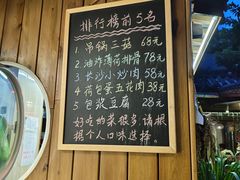 排行榜前5名
1. 吊锅三菇 68元
2. 油炸薄荷排骨 78元
3. 长沙小炒肉 58元
4. 荷包蛋五花肉 38元
5. 包浆豆腐 28元
好吃的菜很多，请根
据个人口味选择。